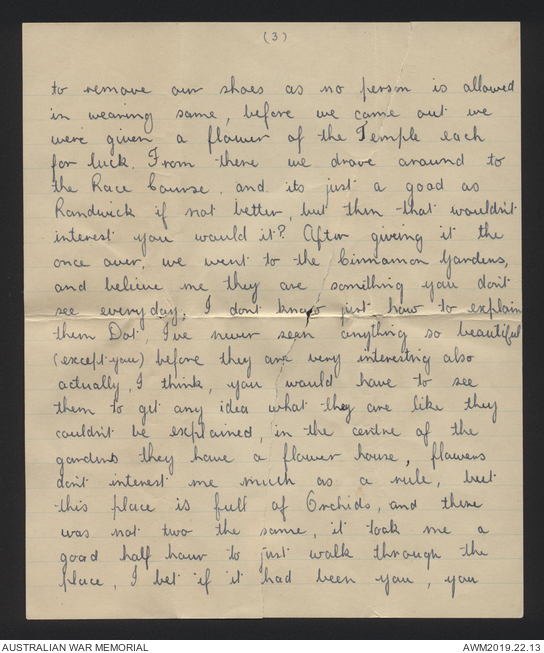 (3)
to remove our shoes as no person is allowed
in wearing same, before we came out we
were given a flower of the Temple each
for luck. From there we drove around to
the Race Course, and its just a good as
Randwick if not better, but then that wouldn't
interest you would it? After giving it the
once over, we went to the Cinnamon Gardens,
and believe me they are something you don't
see everyday, I don't know just how to explain
them Dot, I've never seen anything so beautiful
(except you) before they are very interesting also
actually, I think, you would have to see
them to get any idea what they are like they
couldn't be explained, in the centre of the
gardens they have a flower house, flowers
don't interest me much as a rule, but
this place is full of Orchids, and there
was not two the same, it took me a
good half hour to just walk through the
place, I bet if it had been you, you
AUSTRALIAN WAR MEMORIAL
AWM2019.22.13